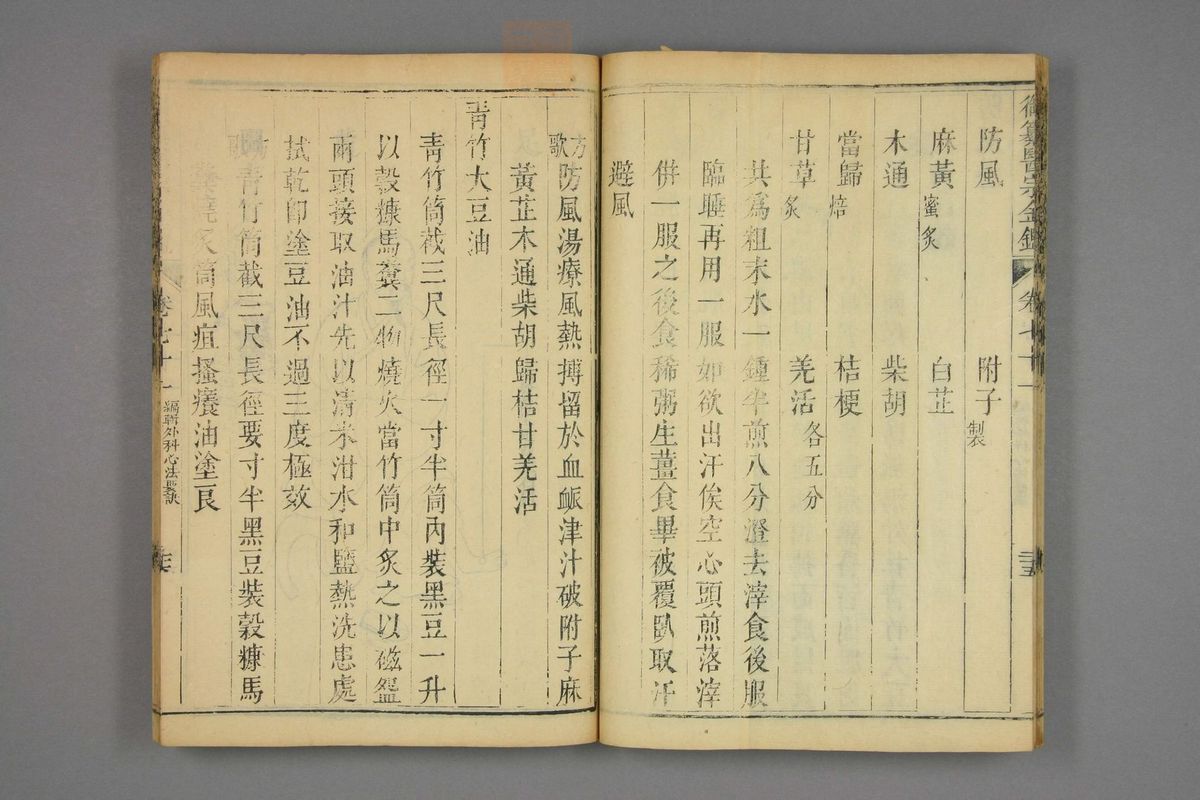 御纂醫宗金鑑 卷七十一 三十五
防風 附子製
麻黃蜜炙 白芷
木通 柴胡
當歸焙 桔梗
甘草炙 羌活各五分
共為粗末水一鍾半煎八分澄去滓食後服
臨睡再用一服如欲出汗俟空心頭煎落滓
併一服之後食稀粥生薑食畢被覆臥取汗
避風
方歌 防風湯療風熱搏留於血脈津汁破附子麻
黃芷木通柴胡歸桔甘羌活
青竹大豆油
青竹筒截三尺長徑一寸半筒內裝黑豆一升
以穀糠馬糞二物燒火當竹筒中炙之以磁盌
兩頭接取油汁先以清米泔水和鹽熱洗患處
拭乾即塗豆油不過三度極效
方歌 青竹筒截三尺長徑要寸半黑豆裝穀糠馬
糞燒炙筒風疽搔癢油塗良
卷七十一 編輯外科心法要訣